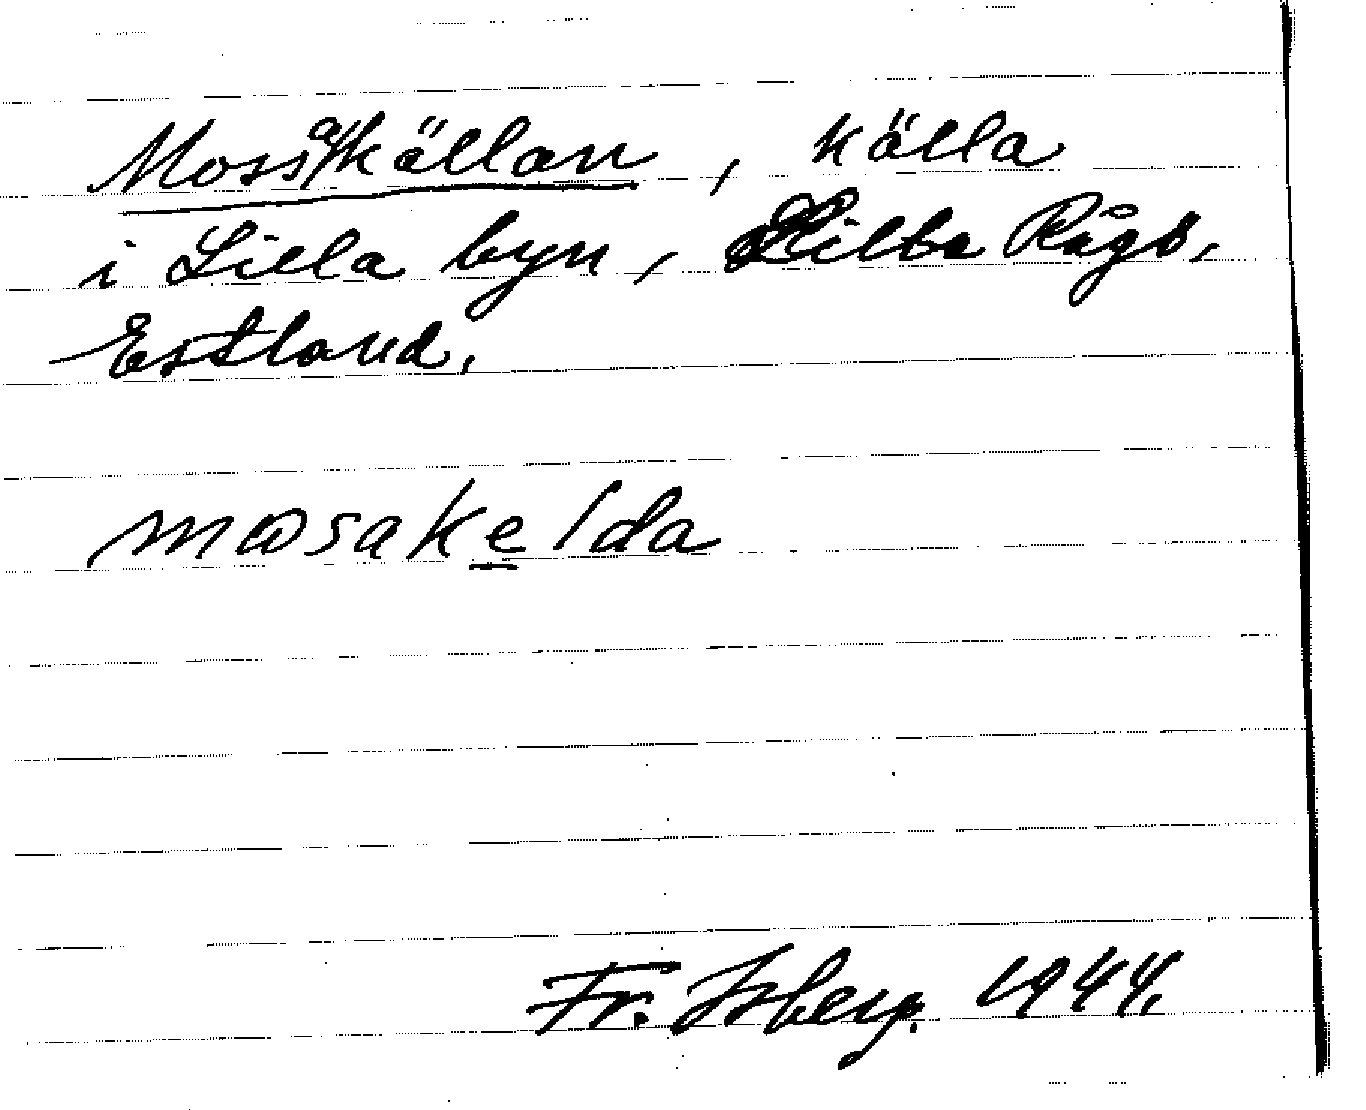 Mossakällan, källa
i Lilla byn, Lilla Rågö,
Estland.
mɷsakelda
Fr. Isberg. 1944.